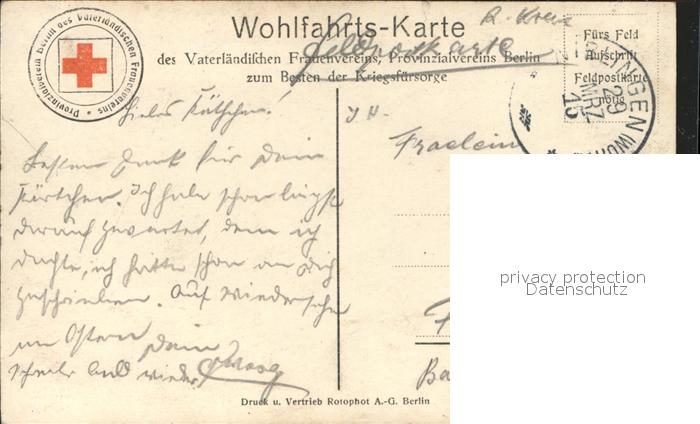 Provinzialverein Berlin des Vaterländischen Frauenvereins
Wohlfahrts-Karte
des Vaterländischen Frauenvereins, Provinzialvereins Berlin
zum Besten der Kriegsfürsorge
Feldpostkarte
R. Kreuz
Fürs Feld
Aufschrift
Feldpostkarte
nötig
29 MRZ 15
Liebes Käthchen!
Besten Dank für Dein
Kärtchen. Ich habe schon längst
darauf gewartet, denn ich
dachte, ich hätte schon an Dich
geschrieben. Auf Wiedersehen
an Ostern Dein
Schreib bald wieder
Fraulein
Druck u. Vertrieb Rotophot A.-G. Berlin
privacy protection
Datenschutz